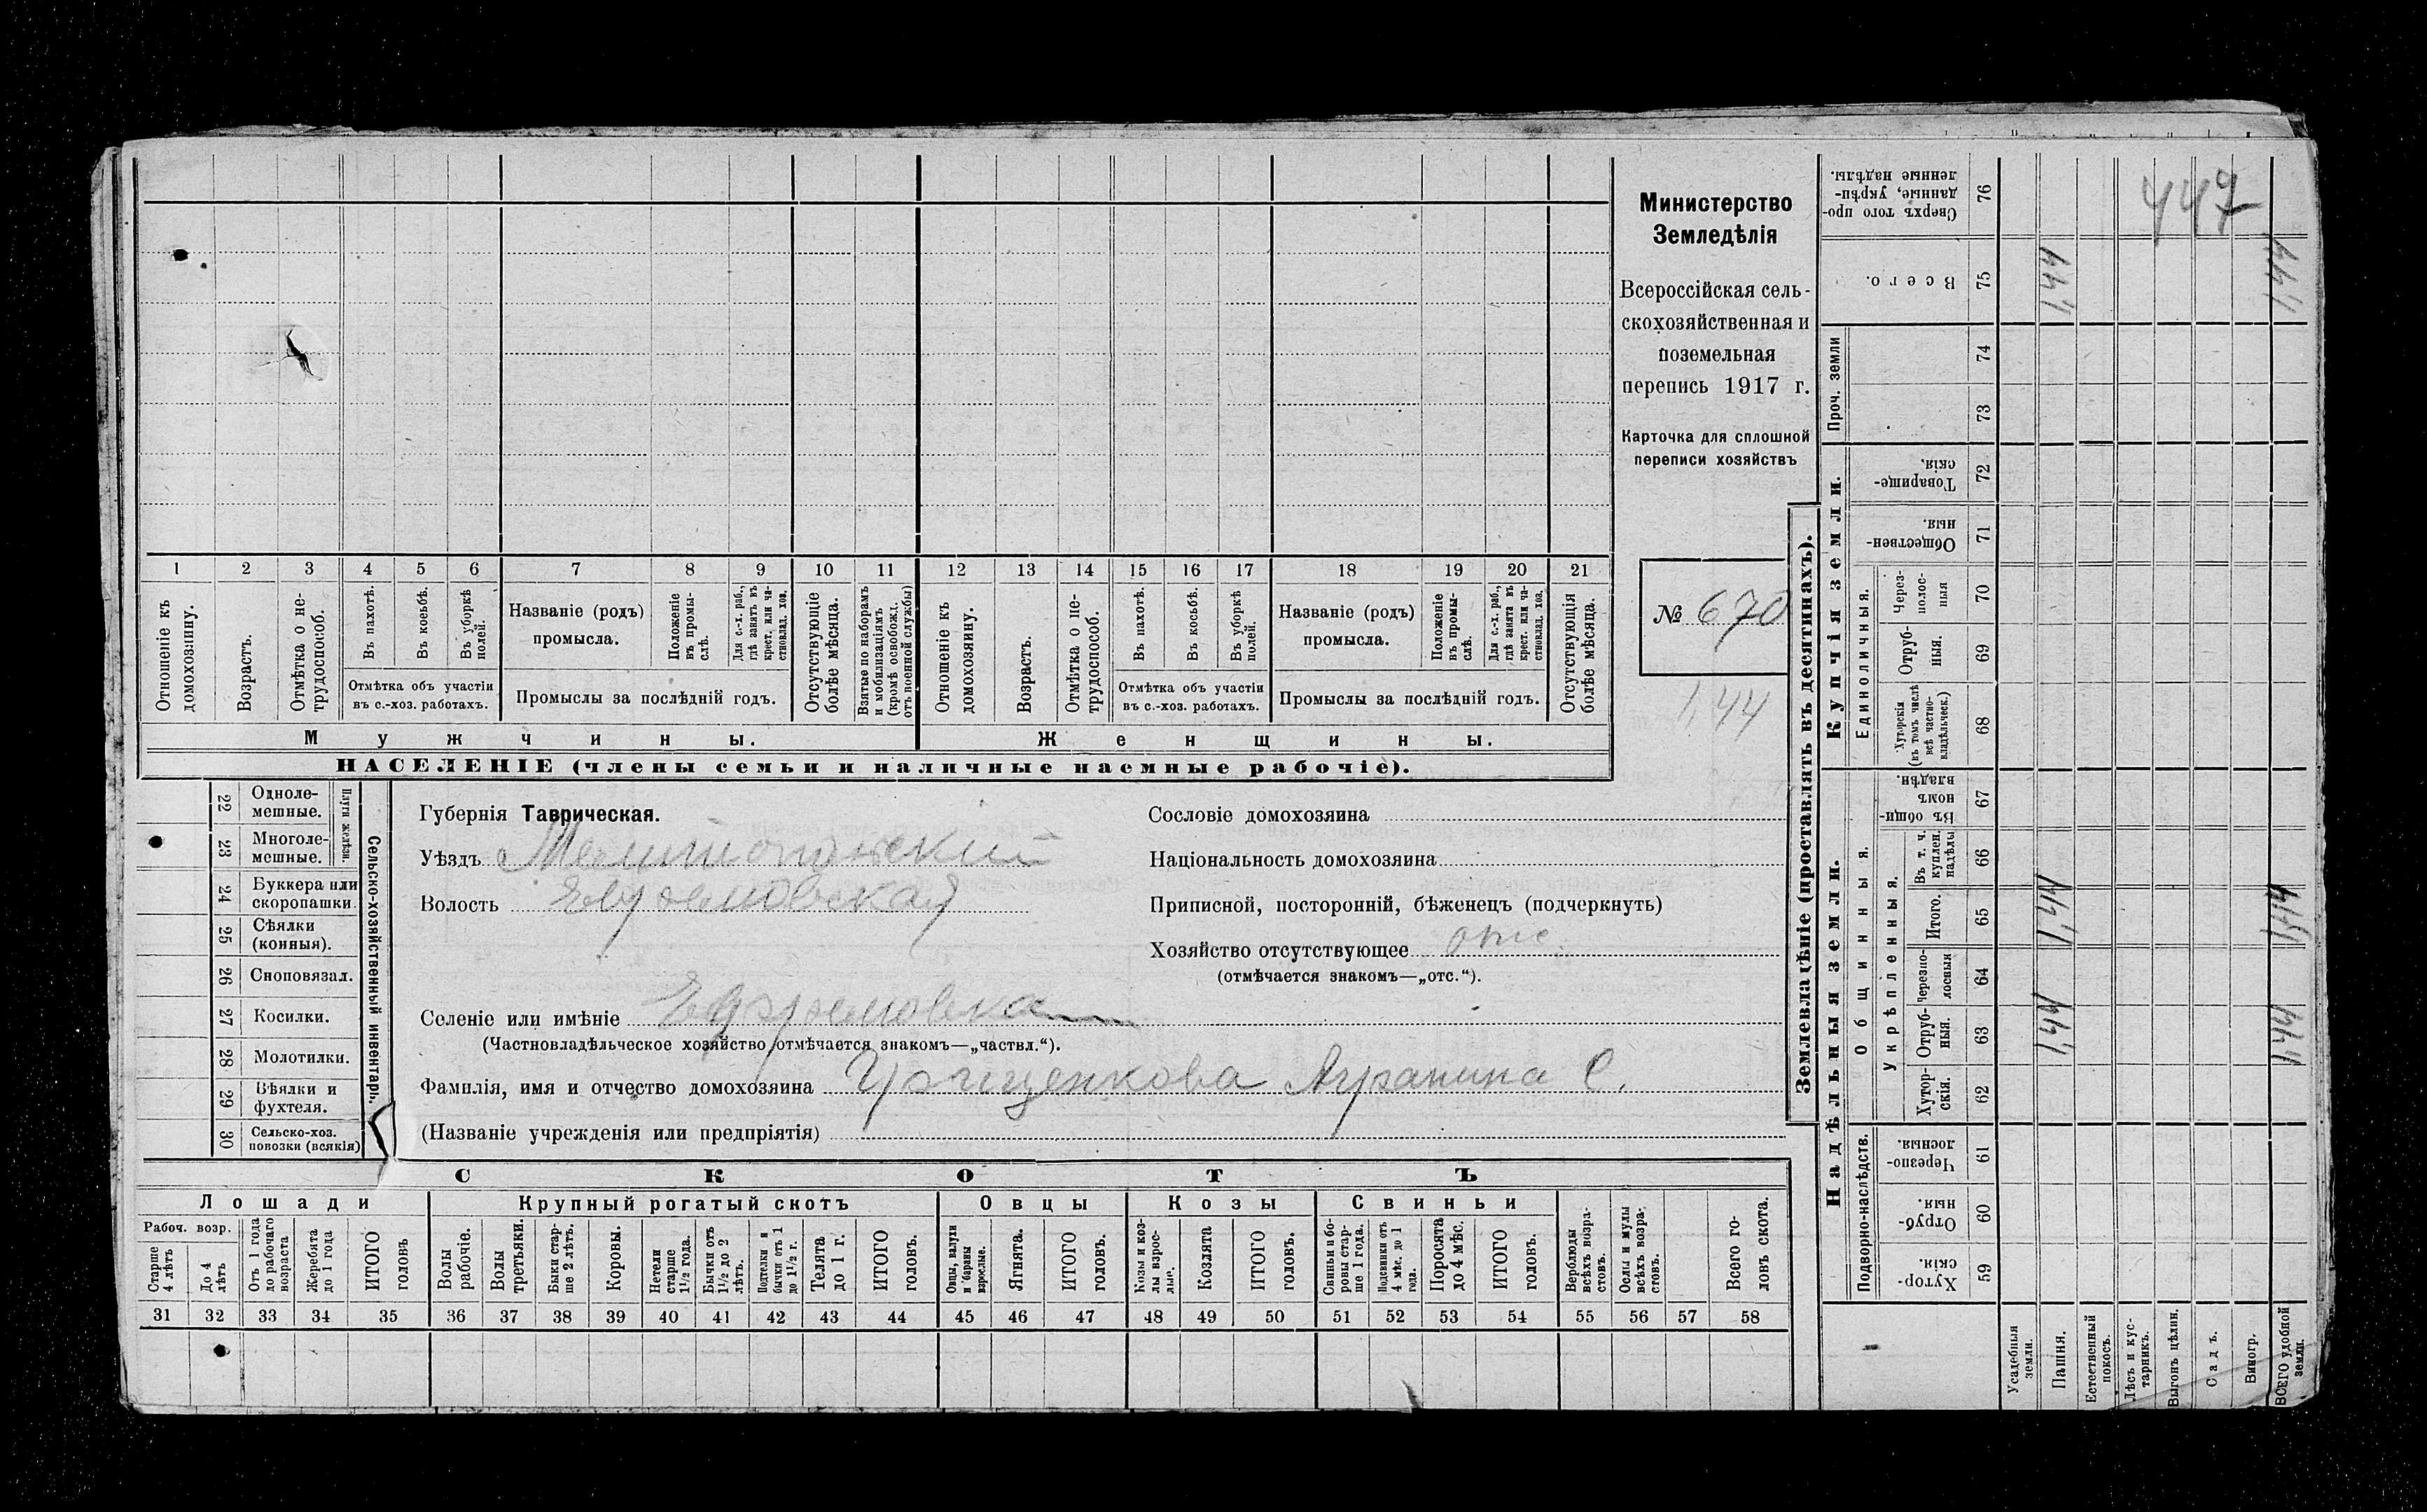 1 2 3 4 5 6 7 8 9 10 11 12 13 14 15 16 17 18 19 20 21
Отношеніе къ домохозяину.
Возрастъ.
Отмѣтка о не-
трудоспособ.
Въ пахотѣ.
Въ косьбѣ.
Въ уборкѣ
полей.
Отмѣтка объ участіи
въ с.-хоз. работахъ.
Названіе (родъ)
промысла.
Положеніе
въ промы-
слѣ.
Для с.-х. раб.,
гдѣ занятъ въ
крест. или ча-
стновлад. хоз.
Промыслы за послѣдній годъ.
Отсутствующіе
болѣе мѣсяца.
Взятые по наборамъ
и мобилизаціямъ
(кромѣ освобожд.
отъ военной службы)
Отношеніе къ
домохозяину.
Возрастъ.
Отмѣтка о не-
трудоспособ.
Въ пахотѣ.
Въ косьбѣ.
Въ уборкѣ
полей.
Отмѣтка объ участіи
въ с.-хоз. работахъ.
Названіе (родъ)
промысла.
Положеніе
въ промы-
слѣ.
Для с.-х. раб.,
гдѣ занята въ
крест. или ча-
стновлад. хоз.
Промыслы за послѣдній годъ.
Отсутствующія
болѣе мѣсяца.
Мужчины.
Женщины.
НАСЕЛЕНІЕ (члены семьи и наличные наемные рабочіе).
Министерство
Земледѣлія
Всероссійская сель-
скохозяйственная и
поземельная
перепись 1917 г.
Карточка для сплошной
переписи хозяйствъ
№ 670
1,44
22 Однолe-
мешные.
23 Многоле-
мешные.
Плуги желѣзн.
24 Буккера или
скоропашки.
25 Сѣялки
(конныя).
26 Сноповязал.
27 Косилки.
28 Молотилки.
29 Вѣялки и
фухтеля.
30 Сельско-хоз.
повозки (всякія)
Сельско-хозяйственный инвентарь.
Губернія Таврическая.
Уѣздъ Мелитопольский
Волость Ефремовская
Селеніе или имѣніе Ефремовка
(Частновладѣльческое хозяйство отмѣчается знакомъ—„частвл.“).
Фамилія, имя и отчество домохозяина
(Названіе учрежденія или предпріятія)
Сословіе домохозяина
Національность домохозяина
Приписной, посторонній, бѣженецъ (подчеркнуть)
Хозяйство отсутствующее отс.
(отмѣчается знакомъ—„отс.“).
СКОТЪ
Лошади
Крупный рогатый скотъ
Овцы
Козы
Свиньи
Рабоч. возр.
Старше
4 лѣтъ
До 4
лѣтъ
Отъ 1 года
до рабочаго
возраста
Жеребята
до 1 года
ИТОГО
головъ
Волы
рабочіе.
Волы
третьяки.
Быки стар-
ше 2 лѣтъ.
Коровы.
Нетели
старше
1½ года.
Бычки отъ
1½ до 2
лѣтъ.
Подтелки и
бычки отъ 1
до 1½ г.
Телята
до 1 г.
ИТОГО
головъ.
Овцы, валухи
и бараны
взрослые.
Ягнята.
ИТОГО
головъ.
Козы и коз-
лы взрос-
лые.
Козлята
ИТОГО
головъ.
Свиньи и бо-
ровы стар-
ше 1 года.
Подсвинки отъ
4 мѣс. до 1
года.
Поросята
до 4 мѣс.
ИТОГО
головъ.
Верблюды
всѣхъ возра-
стовъ.
Ослы и мулы
всѣхъ возра-
стовъ.
Всего го-
ловъ скота.
31 32 33 34 35 36 37 38 39 40 41 42 43 44 45 46 47 48 49 50 51 52 53 54 55 56 57 58
Землевладѣніе (проставлять въ десятинахъ).
Купчія земли.
Надѣльныя земли.
Проч. земли
Единоличныя.
Общинныя.
Укрѣпленныя.
Подворно-наслѣдств.
Сверхъ того про-
данные, укрѣп-
ленные надѣлы.
76
447
Всего.
75
1,44
1,44
74
73
Товарище-
скія.
72
Обществен-
ныя.
71
Через-
полос-
ныя
70
Отруб-
ныя.
69
Хуторскія
(въ томъ числѣ
всѣ частно-
владѣльческ.)
68
Въ общин-
номъ
владѣн.
67
Въ т. ч.
куплен.
надѣлы
66
Итого.
65
1,44
1,44
Черезпо-
лосныя
64
Отруб-
ныя.
63
1,44
1,44
Хутор-
скія.
62
Черезпо-
лосныя.
61
Отруб-
ныя.
60
Хутор-
скія.
59
Усадебныя
земли.
Пашня.
Естественный
покосъ.
Лѣсъ и кус-
тарникъ.
Выгонъ цѣлин.
Садъ.
Виногр.
ВСЕГО удобной
земли.